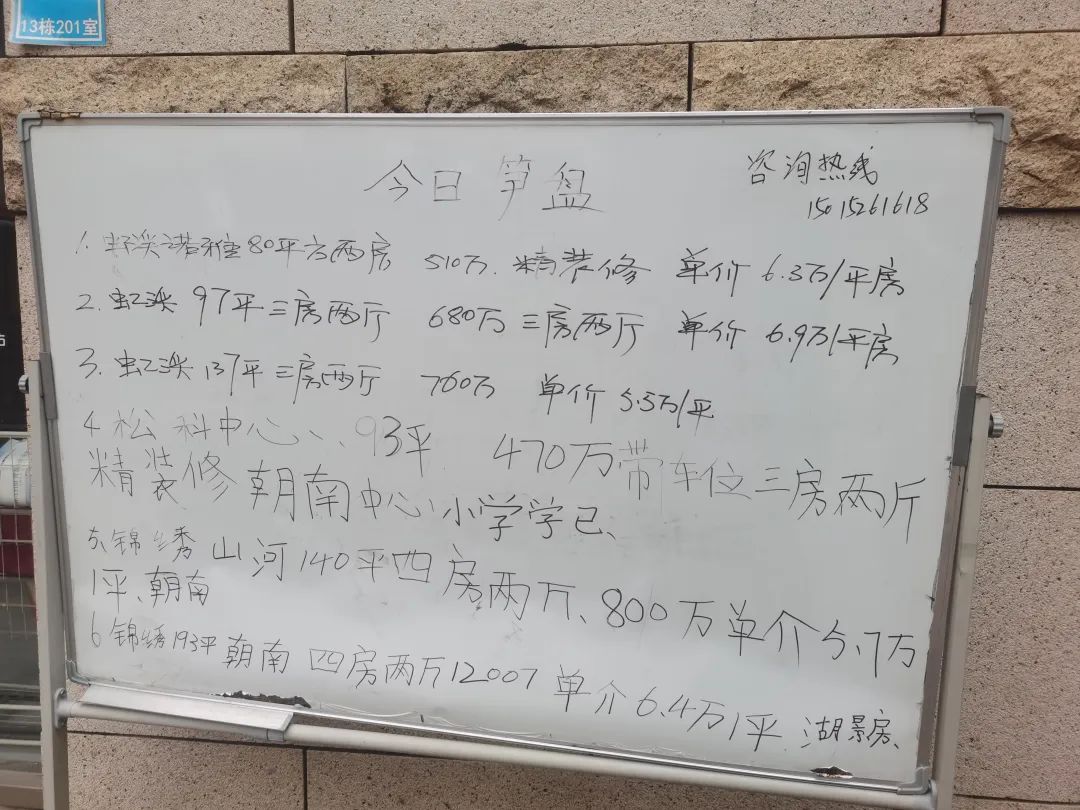 13栋201室
今日笋盘
咨询热线
15015261618
1. 虹溪诺雅80平方两房 510万. 精装修 单价6.3万/平房
2. 虹溪 97平三房两厅 680万 三房两厅 单价6.9万/平房
3. 虹溪137平三房两厅 760万 单价5.5万/平
4 松科中心、、93平. 470万带车位三房两斤
精装修朝南中心小学学已、
5、锦绣山河140平四房两万、800万单介5.7万
1平、朝南
6 锦绣193平朝南四房两万12007 单介6.4万1平.湖景房、